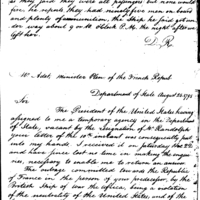 as they said they were all passengers but now would
fire, he repeats they had ninety five men on board
and plenty of ammunition, the Ship he said got un
der way about 9 or 10 O'Clock P.M. the night after we
left her.
D. R.
Mr Adet, Minister Plen. of the French Repub.
Department of State August 25 1795
Sir.
The President of the United States having
assigned to me a temporary agency in the Department
of State, vacant by the resignation of Mr Randolph
your letter of the 10th instant was consequently put
into my hands. I received it on Saturday the 22d
and have since lost no time in making the enqui
ries, necessary to enable me to return an answer.
The outrage committed towards the Republic
of France in the person of your predecessor, by the
British Ship of War the Africa, being a violation
of the neutrality of the United States, and of the